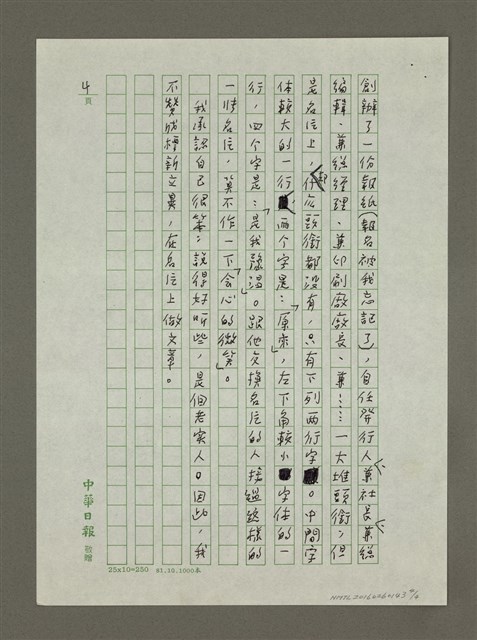 創辦了一份報紙(報名被我忘記了)，自任發行人、兼社長、兼總
編輯、兼總經理、兼印刷廠廠長、兼……一大堆頭銜，但
是名片上，卻什麼頭銜都沒有，只有下列兩行字。中間字
体較大的一行，兩个字是：「原來」，左下角較小字体的一
行，四个字是：「是我該溫」。跟他交換名片的人接過這樣的
一張名片，莫不作一下「會心的微笑」。
我承認自己很笨；說得好听些，是個老實人。因此，我
不贊成標新立異，在名片上做文章。
4頁
中華日報 敬贈
25x10=250 81.10.1000本
NMTL20060060143 4/6